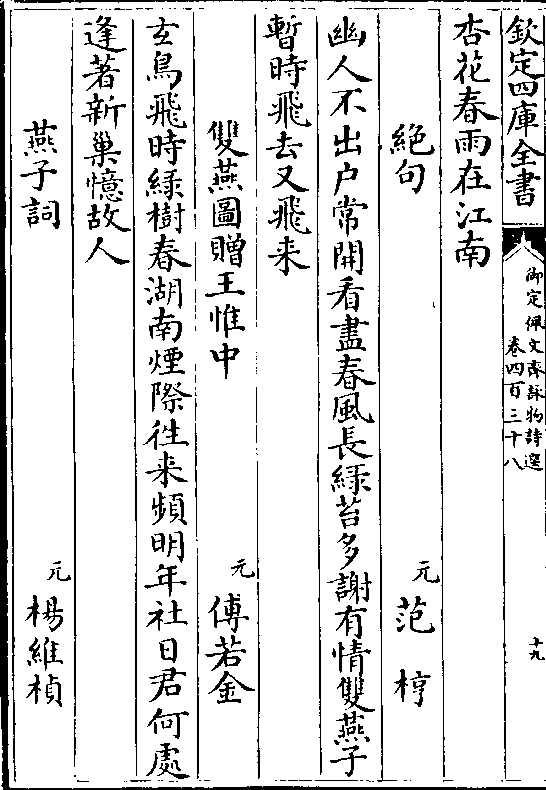 欽定四庫全書
御定佩文齋詠物詩選
卷四百三十八
十九
杏花春雨在江南
絶句 元 范梈
幽人不出户常開看盡春風長緑苔多謝有情雙燕子
暫時飛去又飛来
雙燕圖贈王惟中 元 傅若金
玄鳥飛時緑樹春湖南煙際徃来頻明年社日君何處
逢著新巢憶故人
燕子詞 元 楊維楨